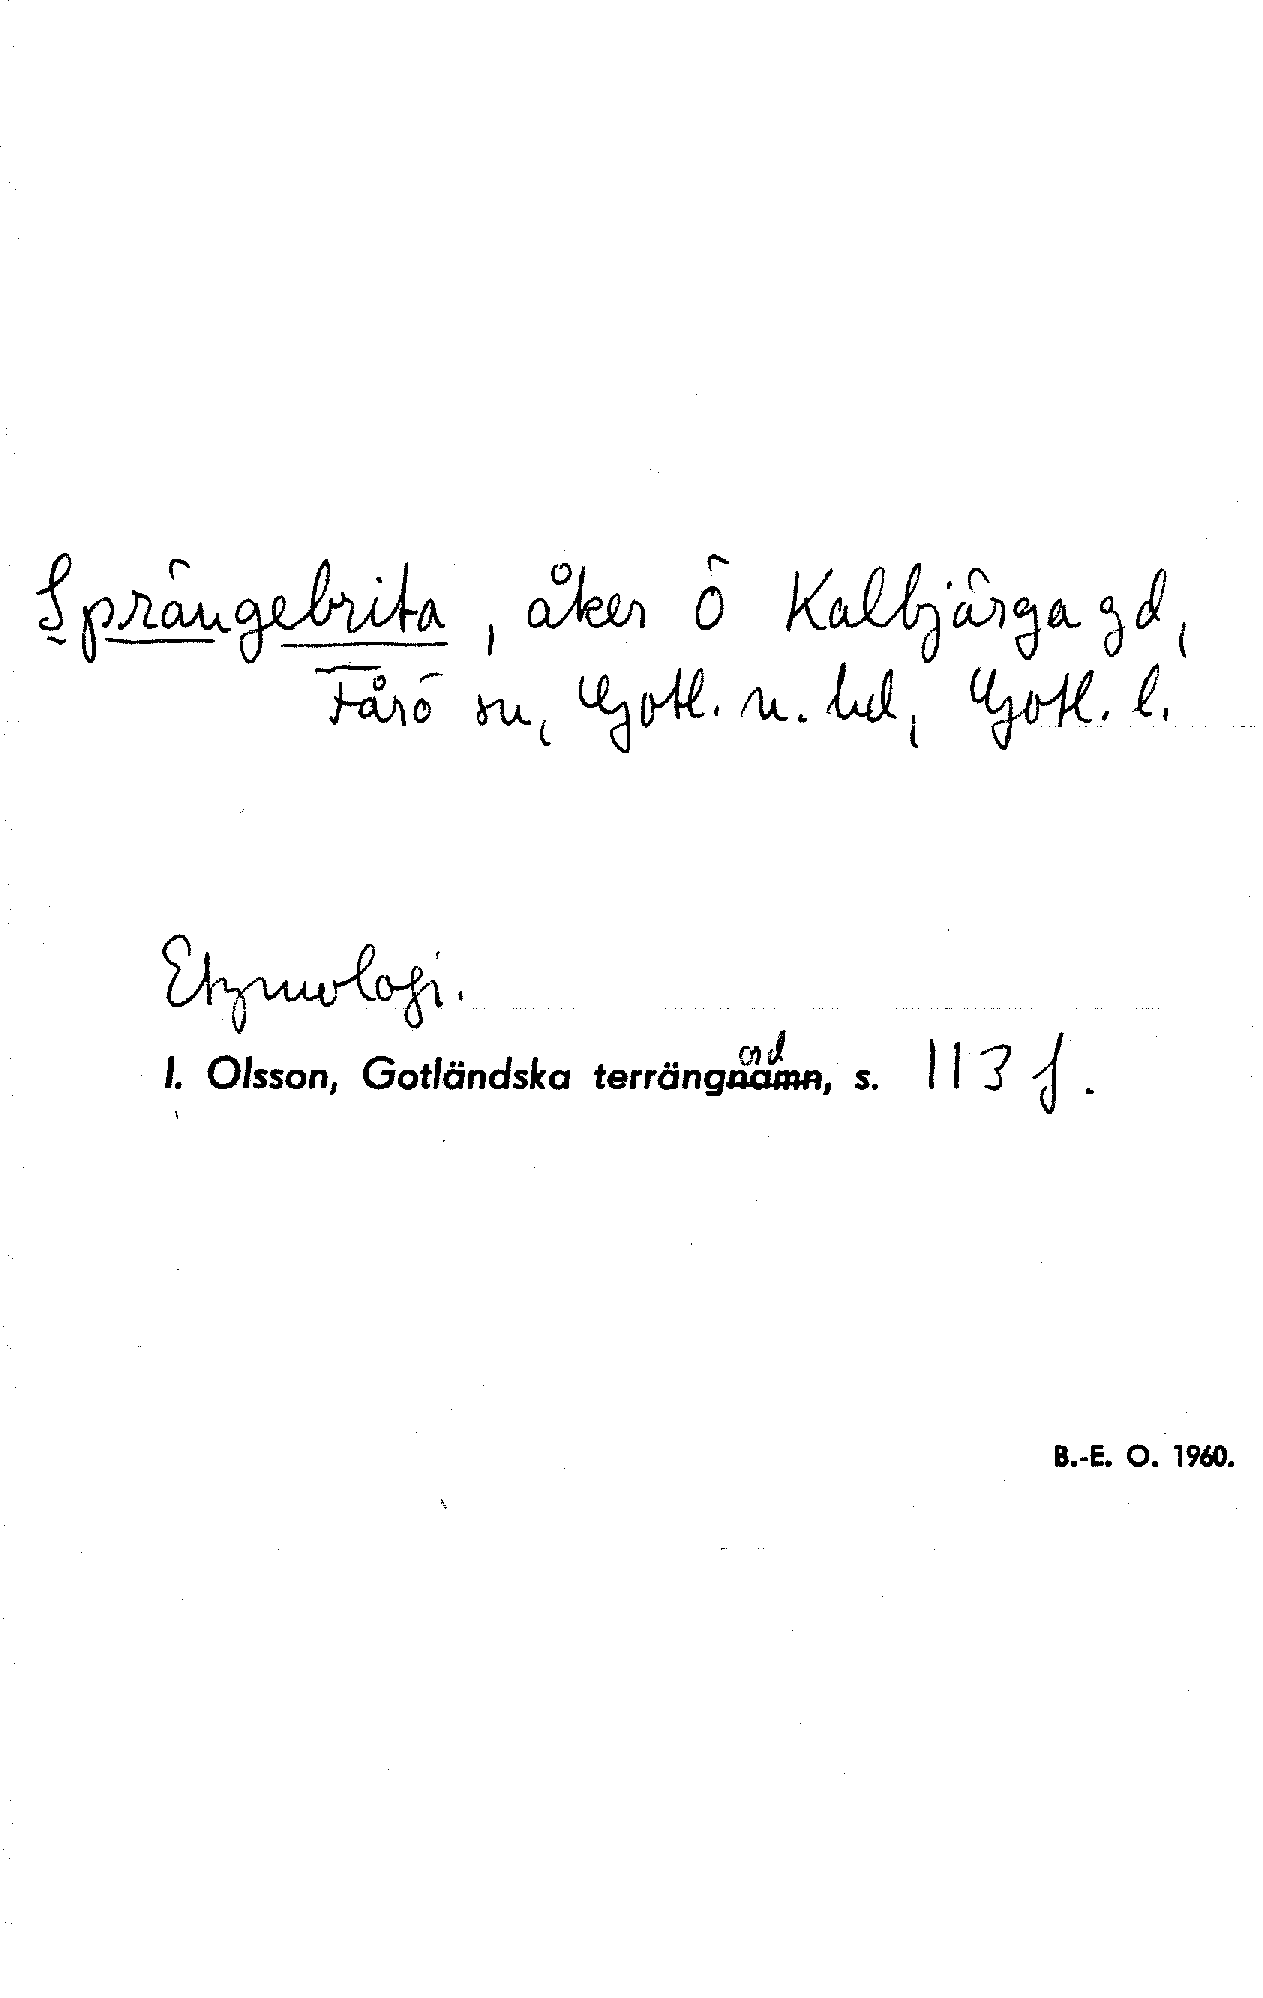 Sprängebrita, åker Ö Kalbjärga gd,
Fårö sn, Gotl. n. hd, Gotl. l.
Etymologi.
I. Olsson, Gotländska terrängord, s. 113 f.
B.-E. O. 1960.